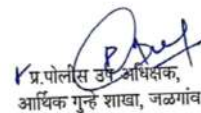 प्र.पोलीस उप अधिक्षक,
आर्थिक गुन्हे शाखा, जळगांव